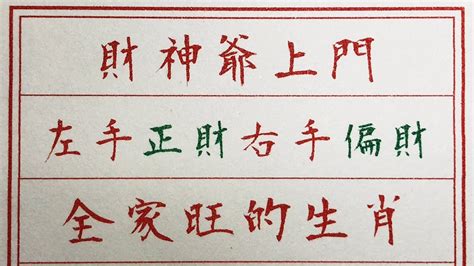 財神爺上門
左手正財右手偏財
全家旺的生肖